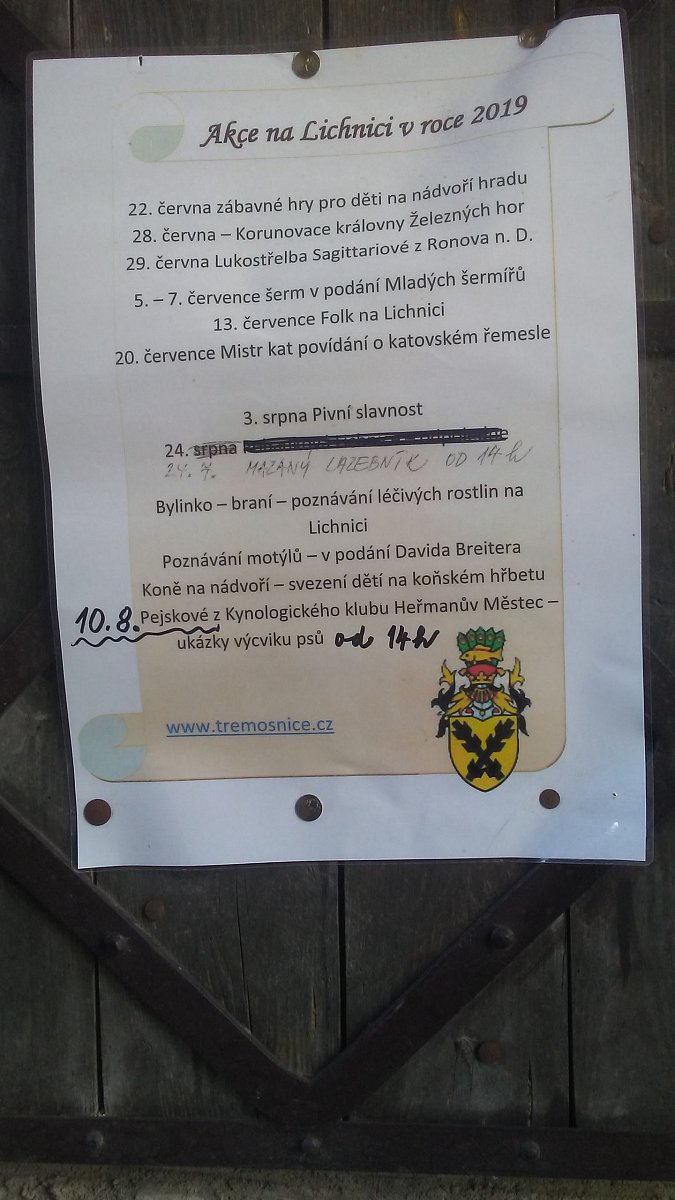 Akce na Lichnici v roce 2019
22. června zábavné hry pro děti na nádvoří hradu
28. června – Korunovace královny Železných hor
29. června Lukostřelba Sagittariové z Ronova n. D.
5. – 7. července šerm v podání Mladých šermířů
13. července Folk na Lichnici
20. července Mistr kat povídání o katovském řemesle
3. srpna Pivní slavnost
24. srpna
24. 7. MAZANÝ LAZEBNÍK OD 14 h
Bylinko – braní – poznávání léčivých rostlin na
Lichnici
Poznávání motýlů – v podání Davida Breitera
Koně na nádvoří – svezení dětí na koňském hřbetu
10.8. Pejskové z Kynologického klubu Heřmanův Městec –
ukázky výcviku psů od 14 h
www.tremosnice.cz